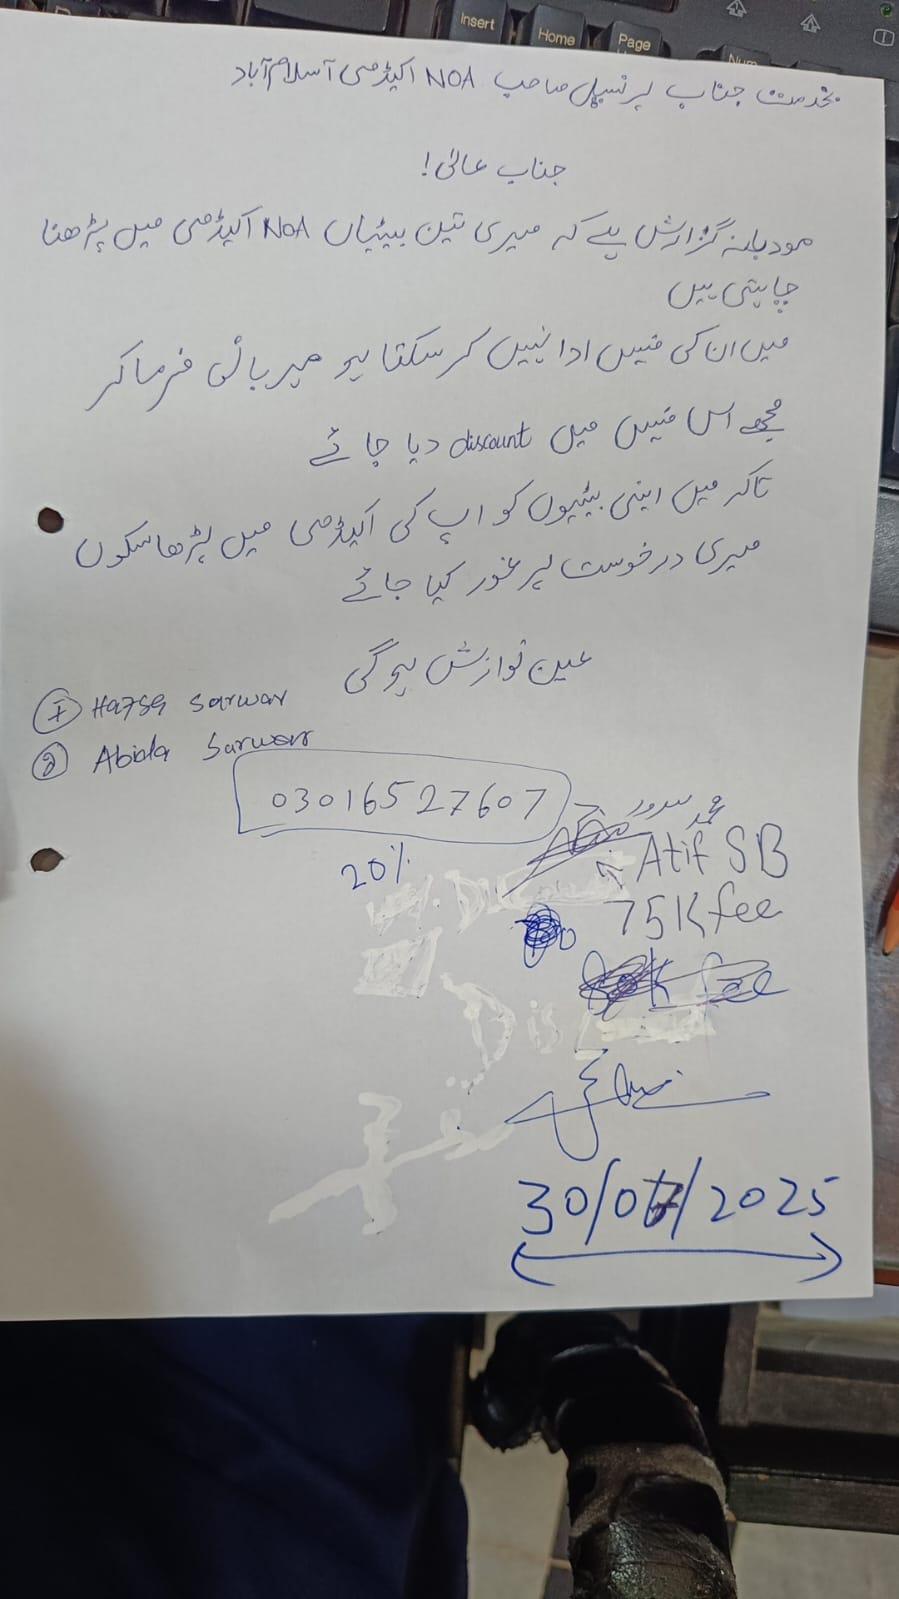 Insert
Home
Page
بخدمت جناب پرنسپل صاحب NOA اکیڈمی آسلام آباد
جناب عالی!
مودبانہ گزارش ہے کہ میری تین بیٹیاں NOA اکیڈمی میں پڑھنا
چاہتی ہیں
میں ان کی فیس ادا نہیں کر سکتا ہو مہربانی فرما کر
مجھے اس فیس میں discount دیا جائے
تاکہ میں اپنی بیٹیوں کو اپ کی اکیڈمی میں پڑھا سکوں
میری درخوست پر غور کیا جائے
عین نوازش ہو گی
① Hafsa Sarwar
② Abida Sarwar
03016527607
محمد سرور
20%
Atif SB
75K fee
Dis
30/07/2025